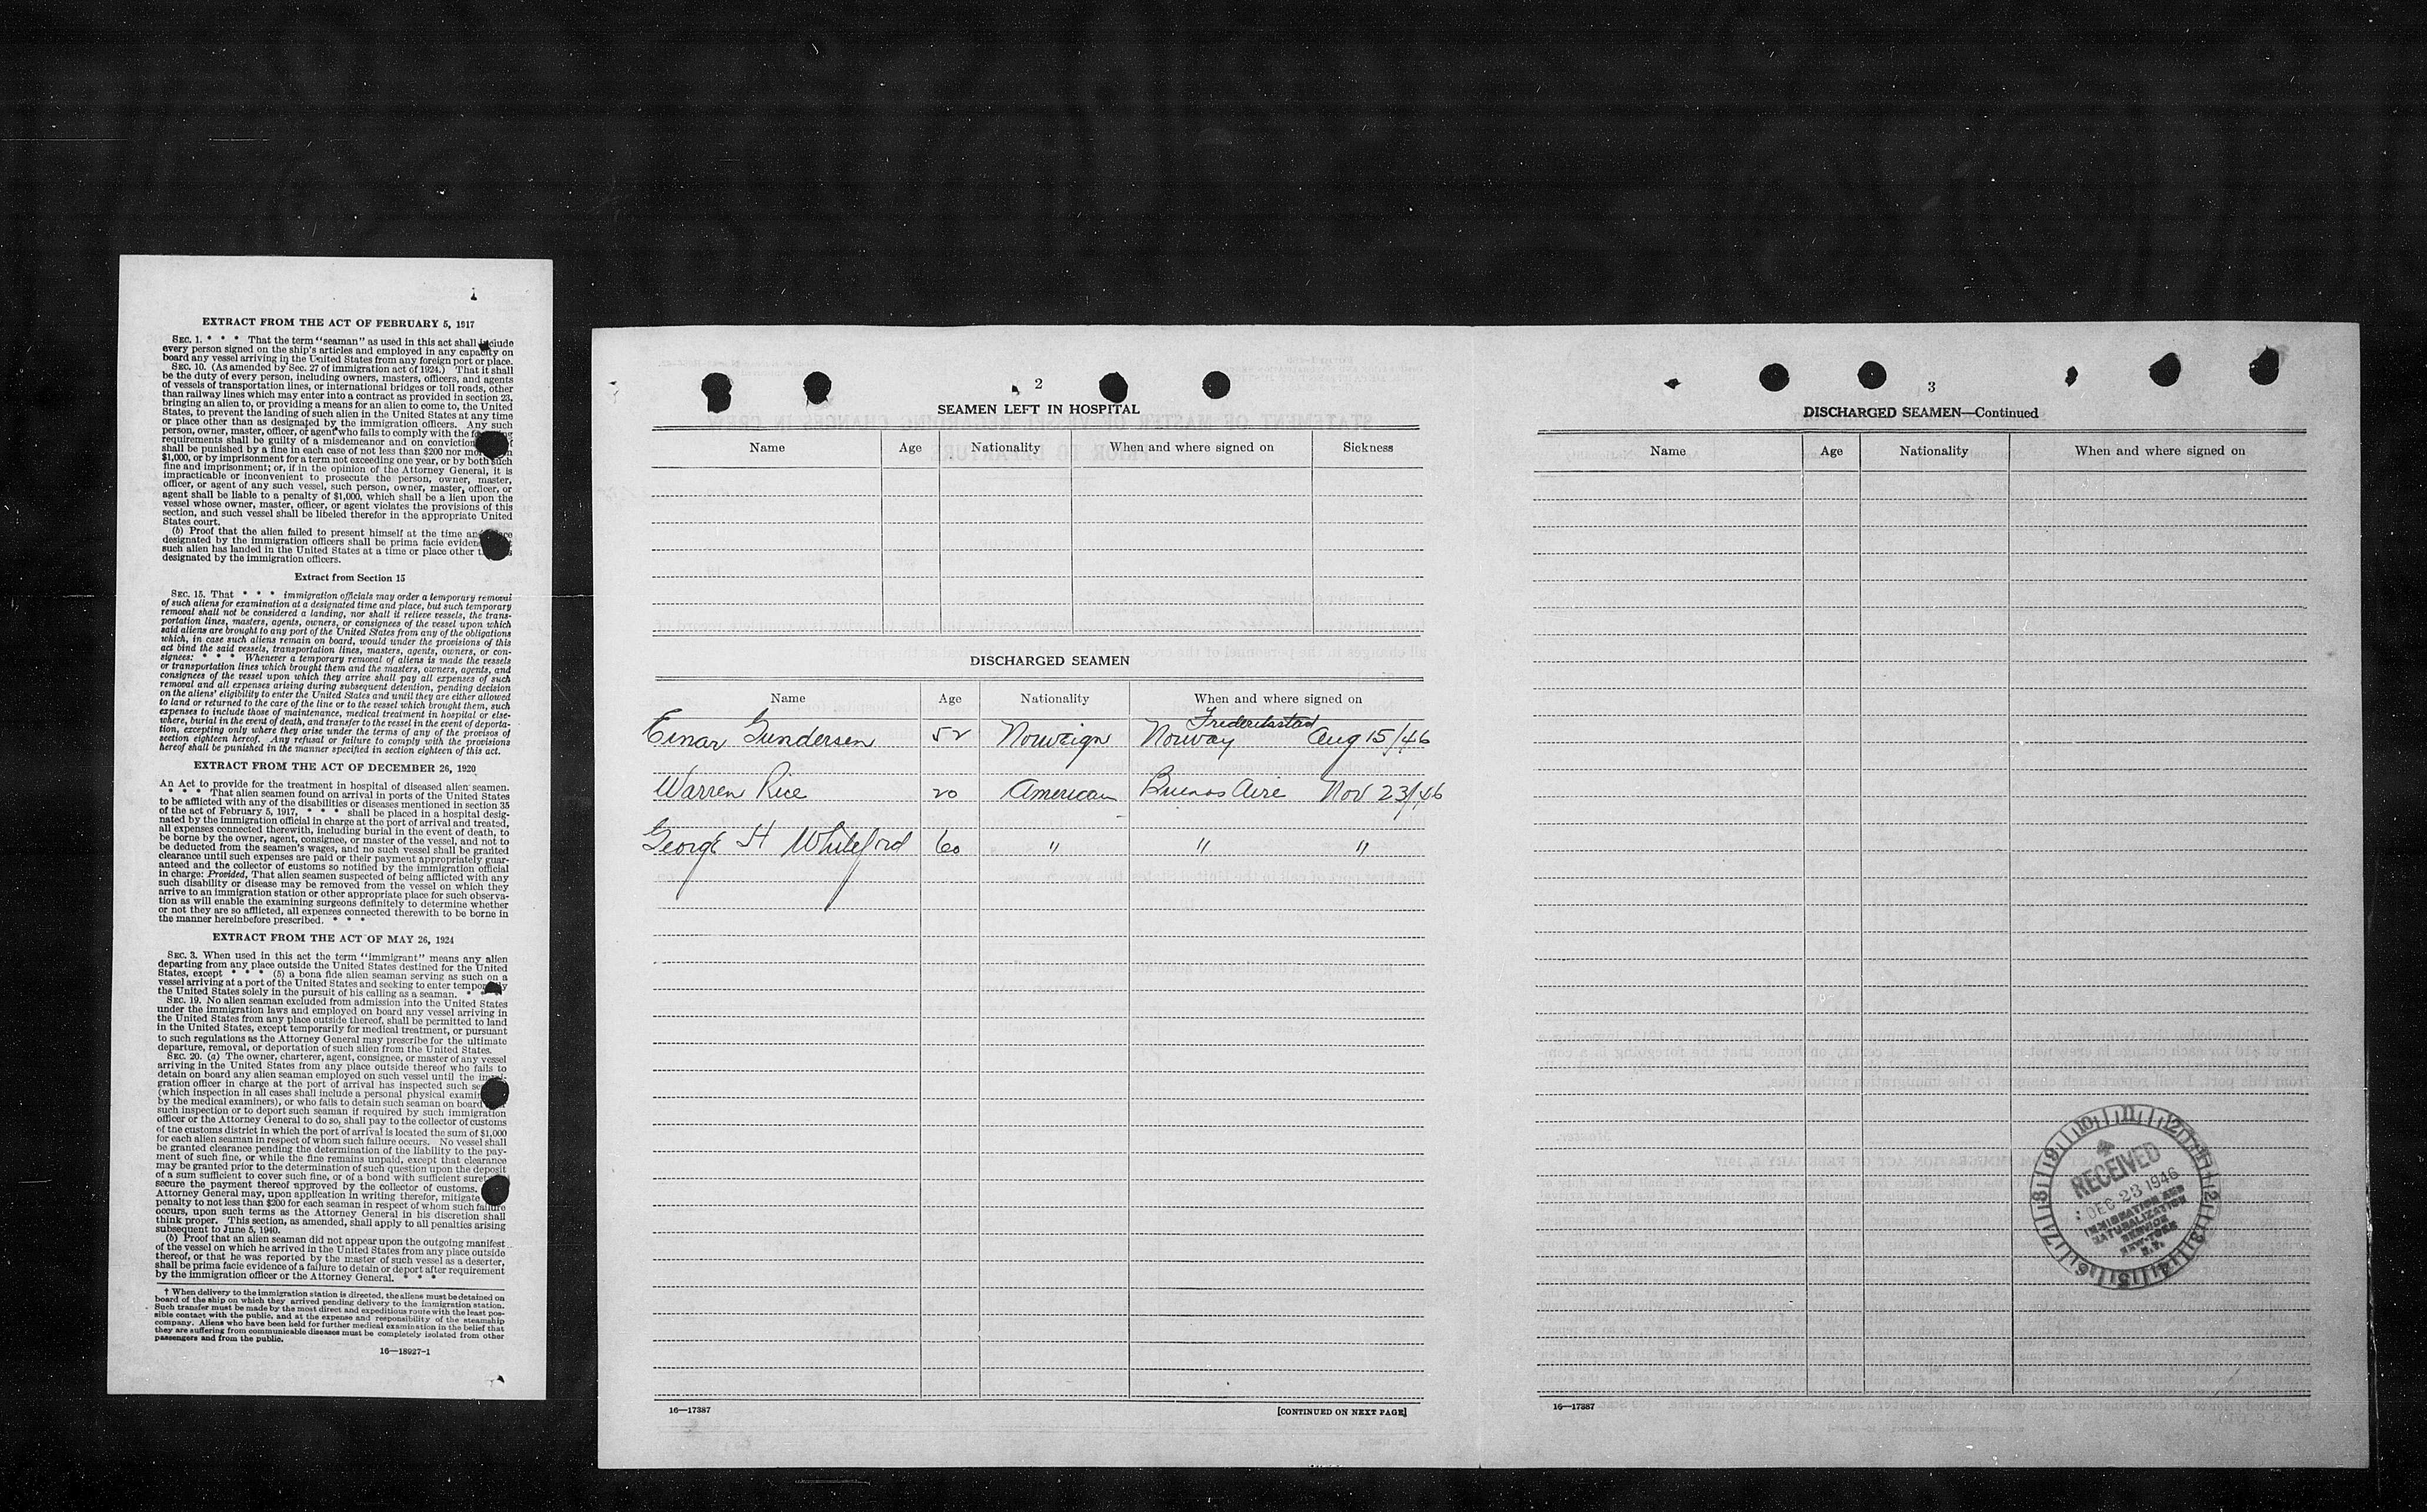 EXTRACT FROM THE ACT OF FEBRUARY 5, 1917
SEC. 1. * * * That the term "seaman" as used in this act shall include
every person signed on the ship's articles and employed in any capacity on
board any vessel arriving in the United States from any foreign port or place.
SEC. 10. (As amended by Sec. 27 of immigration act of 1924.) That it shall
be the duty of every person, including owners, masters, officers, and agents
of vessels of transportation lines, or international bridges or toll roads, other
than railway lines which may enter into a contract as provided in section 23,
bringing an alien to, or providing a means for an alien to come to, the United
States, to prevent the landing of such alien in the United States at any time
or place other than as designated by the immigration officers. Any such
person, owner, master, officer, or agent who fails to comply with the
requirements shall be guilty of a misdemeanor and on conviction
shall be punished by a fine in each case of not less than $200 nor more
$1,000, or by imprisonment for a term not exceeding one year, or by both such
fine and imprisonment; or, if in the opinion of the Attorney General, it is
impracticable or inconvenient to prosecute the person, owner, master,
officer, or agent of any such vessel, such person, owner, master, officer, or
agent shall be liable to a penalty of $1,000, which shall be a lien upon the
vessel whose owner, master, officer, or agent violates the provisions of this
section, and such vessel shall be libeled therefor in the appropriate United
States court.
(b) Proof that the alien failed to present himself at the time and
designated by the immigration officers shall be prima facie
such alien has landed in the United States at a time or place other
designated by the immigration officers.
Extract from Section 15
SEC. 15. That * * * immigration officials may order a temporary removal
of such aliens for examination at a designated time and place, but such temporary
removal shall not be considered a landing, nor shall it relieve vessels, the trans-
portation lines, masters, agents, owners, or consignees of the vessel upon which
said aliens are brought to any port of the United States from any of the obligations
which, in case such aliens remain on board, would under the provisions of this
act bind the said vessels, transportation lines, masters, agents, owners, or con-
signees: * * * Whenever a temporary removal of aliens is made the vessels
or transportation lines which brought them and the masters, owners, agents, and
consignees of the vessel upon which they arrive shall pay all expenses of such
removal and all expenses arising during subsequent detention, pending decision
on the aliens' eligibility to enter the United States and until they are either allowed
to land or returned to the care of the line or to the vessel which brought them, such
expenses to include those of maintenance, medical treatment in hospital or else-
where, burial in the event of death, and transfer to the vessel in the event of deporta-
tion, excepting only where they arise under the terms of any of the provisos of
section eighteen hereof. Any refusal or failure to comply with the provisions
hereof shall be punished in the manner specified in section eighteen of this act.
EXTRACT FROM THE ACT OF DECEMBER 26, 1920
An Act to provide for the treatment in hospital of diseased alien seamen.
* * * That alien seamen found on arrival in ports of the United States
to be afflicted with any of the disabilities or diseases mentioned in section 35
of the act of February 5, 1917, * * * shall be placed in a hospital desig-
nated by the immigration official in charge at the port of arrival and treated,
all expenses connected therewith, including burial in the event of death, to
be borne by the owner, agent, consignee, or master of the vessel, and not to
be deducted from the seamen's wages, and no such vessel shall be granted
clearance until such expenses are paid or their payment appropriately guar-
anteed and the collector of customs so notified by the immigration official
in charge: Provided, That alien seamen suspected of being afflicted with any
such disability or disease may be removed from the vessel on which they
arrive to an immigration station or other appropriate place for such observa-
tion as will enable the examining surgeons definitely to determine whether
or not they are so afflicted, all expenses connected therewith to be borne in
the manner hereinbefore prescribed. * * *
EXTRACT FROM THE ACT OF MAY 26, 1924
SEC. 3. When used in this act the term "immigrant" means any alien
departing from any place outside the United States destined for the United
States, except * * * (5) a bona fide alien seaman serving as such on a
vessel arriving at a port of the United States and seeking to enter temporarily
the United States solely in the pursuit of his calling as a seaman. * *
SEC. 19. No alien seaman excluded from admission into the United States
under the immigration laws and employed on board any vessel arriving in
the United States from any place outside thereof, shall be permitted to land
in the United States, except temporarily for medical treatment, or pursuant
to such regulations as the Attorney General may prescribe for the ultimate
departure, removal, or deportation of such alien from the United States.
SEC. 20. (a) The owner, charterer, agent, consignee, or master of any vessel
arriving in the United States from any place outside thereof who fails to
detain on board any alien seaman employed on such vessel until the immi-
gration officer in charge at the port of arrival has inspected such
(which inspection in all cases shall include a personal physical
by the medical examiners), or who fails to detain such seaman on board
such inspection or to deport such seaman if required by such immigration
officer or the Attorney General to do so, shall pay to the collector of customs
of the customs district in which the port of arrival is located the sum of $1,000
for each alien seaman in respect of whom such failure occurs. No vessel shall
be granted clearance pending the determination of the liability to the pay-
ment of such fine, or while the fine remains unpaid, except that clearance
may be granted prior to the determination of such question upon the deposit
of a sum sufficient to cover such fine, or of a bond with sufficient
secure the payment thereof approved by the collector of customs.
Attorney General may, upon application in writing therefor, mitigate
penalty to not less than $200 for each seaman in respect of whom such failure
occurs, upon such terms as the Attorney General in his discretion shall
think proper. This section, as amended, shall apply to all penalties arising
subsequent to June 5, 1940.
(b) Proof that an alien seaman did not appear upon the outgoing manifest
of the vessel on which he arrived in the United States from any place outside
thereof, or that he was reported by the master of such vessel as a deserter,
shall be prima facie evidence of a failure to detain or deport after requirement
by the immigration officer or the Attorney General. * * *
† When delivery to the immigration station is directed, the aliens must be detained on
board of the ship on which they arrived pending delivery to the immigration station.
Such transfer must be made by the most direct and expeditious route with the least pos-
sible contact with the public, and at the expense and responsibility of the steamship
company. Aliens who have been held for further medical examination in the belief that
they are suffering from communicable diseases must be completely isolated from other
passengers and from the public.
16—18927-1
2
SEAMEN LEFT IN HOSPITAL
Name Age Nationality When and where signed on Sickness
DISCHARGED SEAMEN
Name Age Nationality When and where signed on
Frederikstad
Einar Gundersen 52 Norweign Norway Aug 15/46
Warren Rice 20 American Buenos Aire Nov 23/46
George H Whiteford 60 " " "
16—17387 [CONTINUED ON NEXT PAGE]
3
DISCHARGED SEAMEN—Continued
Name Age Nationality When and where signed on
RECEIVED
DEC 23 1946
IMMIGRATION AND
NATURALIZATION
SERVICE
NEW YORK
N.Y.
16—17387